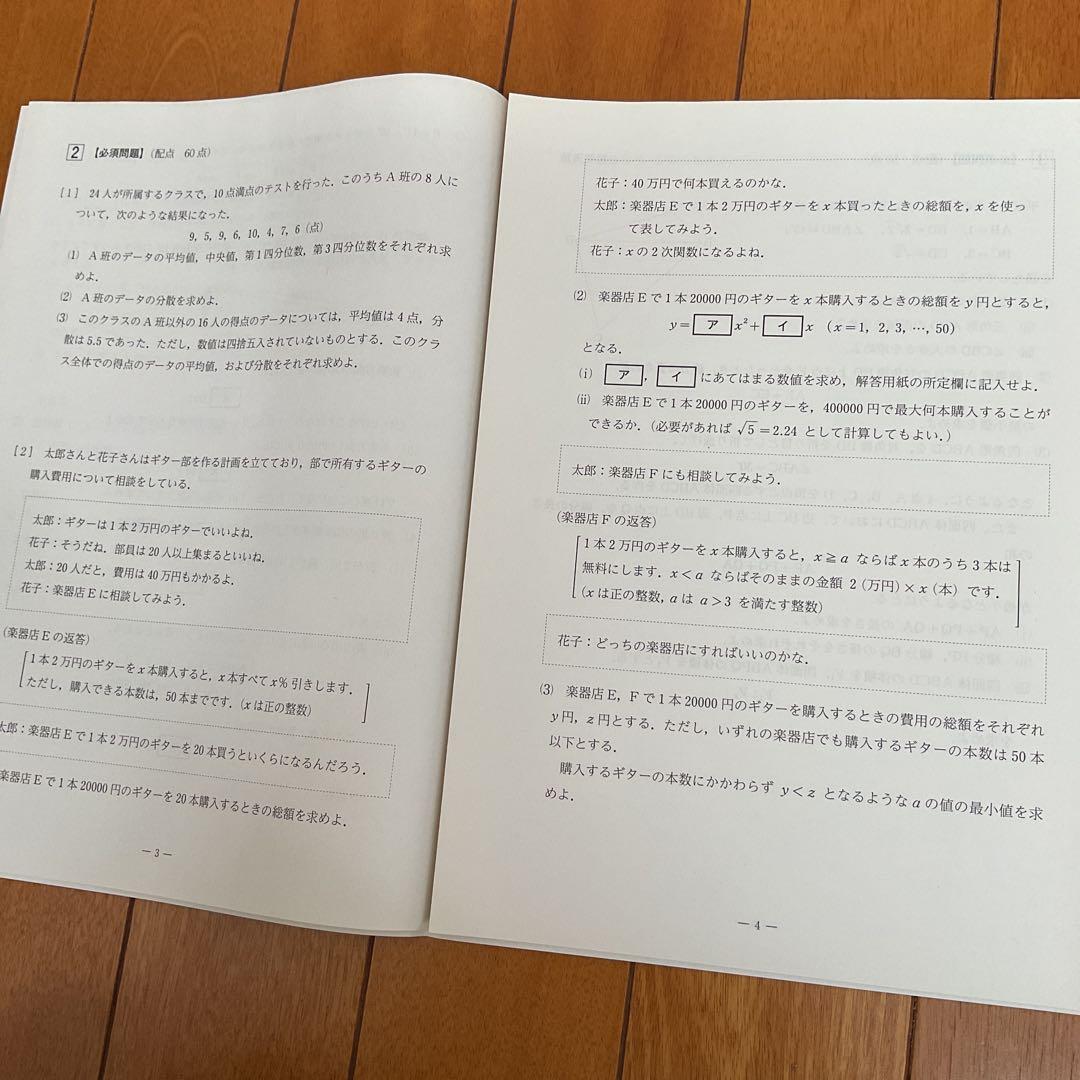 2 【必須問題】(配点 60点)
[1] 24人が所属するクラスで，10点満点のテストを行った．このうちA班の8人に
ついて，次のような結果になった．
9，5，9，6，10，4，7，6（点）
(1) A班のデータの平均値，中央値，第1四分位数，第3四分位数をそれぞれ求
めよ．
(2) A班のデータの分散を求めよ．
(3) このクラスのA班以外の16人の得点のデータについては，平均値は4点，分
散は5.5であった．ただし，数値は四捨五入されていないものとする．このクラ
ス全体での得点のデータの平均値，および分散をそれぞれ求めよ．
[2] 太郎さんと花子さんはギター部を作る計画を立てており，部で所有するギターの
購入費用について相談をしている．
太郎：ギターは1本2万円のギターでいいよね．
花子：そうだね．部員は20人以上集まるといいね．
太郎：20人だと，費用は40万円もかかるよ．
花子：楽器店Eに相談してみよう．
(楽器店Eの返答)
1本2万円のギターをx本購入すると，x本すべてx％引きします．
ただし，購入できる本数は，50本までです．(xは正の整数)
太郎：楽器店Eで1本2万円のギターを20本買うといくらになるんだろう．
楽器店Eで1本20000円のギターを20本購入するときの総額を求めよ．
— 3 —
花子：40万円で何本買えるのかな．
太郎：楽器店Eで1本2万円のギターをx本買ったときの総額を，xを使っ
て表してみよう．
花子：xの2次関数になるよね．
(2) 楽器店Eで1本20000円のギターをx本購入するときの総額をy円とすると，
y＝ ア x²＋ イ x (x＝1，2，3，…，50)
となる．
(i) ア ， イ にあてはまる数値を求め，解答用紙の所定欄に記入せよ．
(ii) 楽器店Eで1本20000円のギターを，400000円で最大何本購入することが
できるか．(必要があれば √5＝2.24 として計算してもよい．)
太郎：楽器店Fにも相談してみよう．
(楽器店Fの返答)
1本2万円のギターをx本購入すると，x≧a ならばx本のうち3本は
無料にします．x＜a ならばそのままの金額 2(万円)×x(本) です．
(xは正の整数，aは a＞3 を満たす整数)
花子：どっちの楽器店にすればいいのかな．
(3) 楽器店E，Fで1本20000円のギターを購入するときの費用の総額をそれぞれ
y円，z円とする．ただし，いずれの楽器店でも購入するギターの本数は50本
以下とする．
購入するギターの本数にかかわらず y＜z となるようなaの値の最小値を求
めよ．
— 4 —